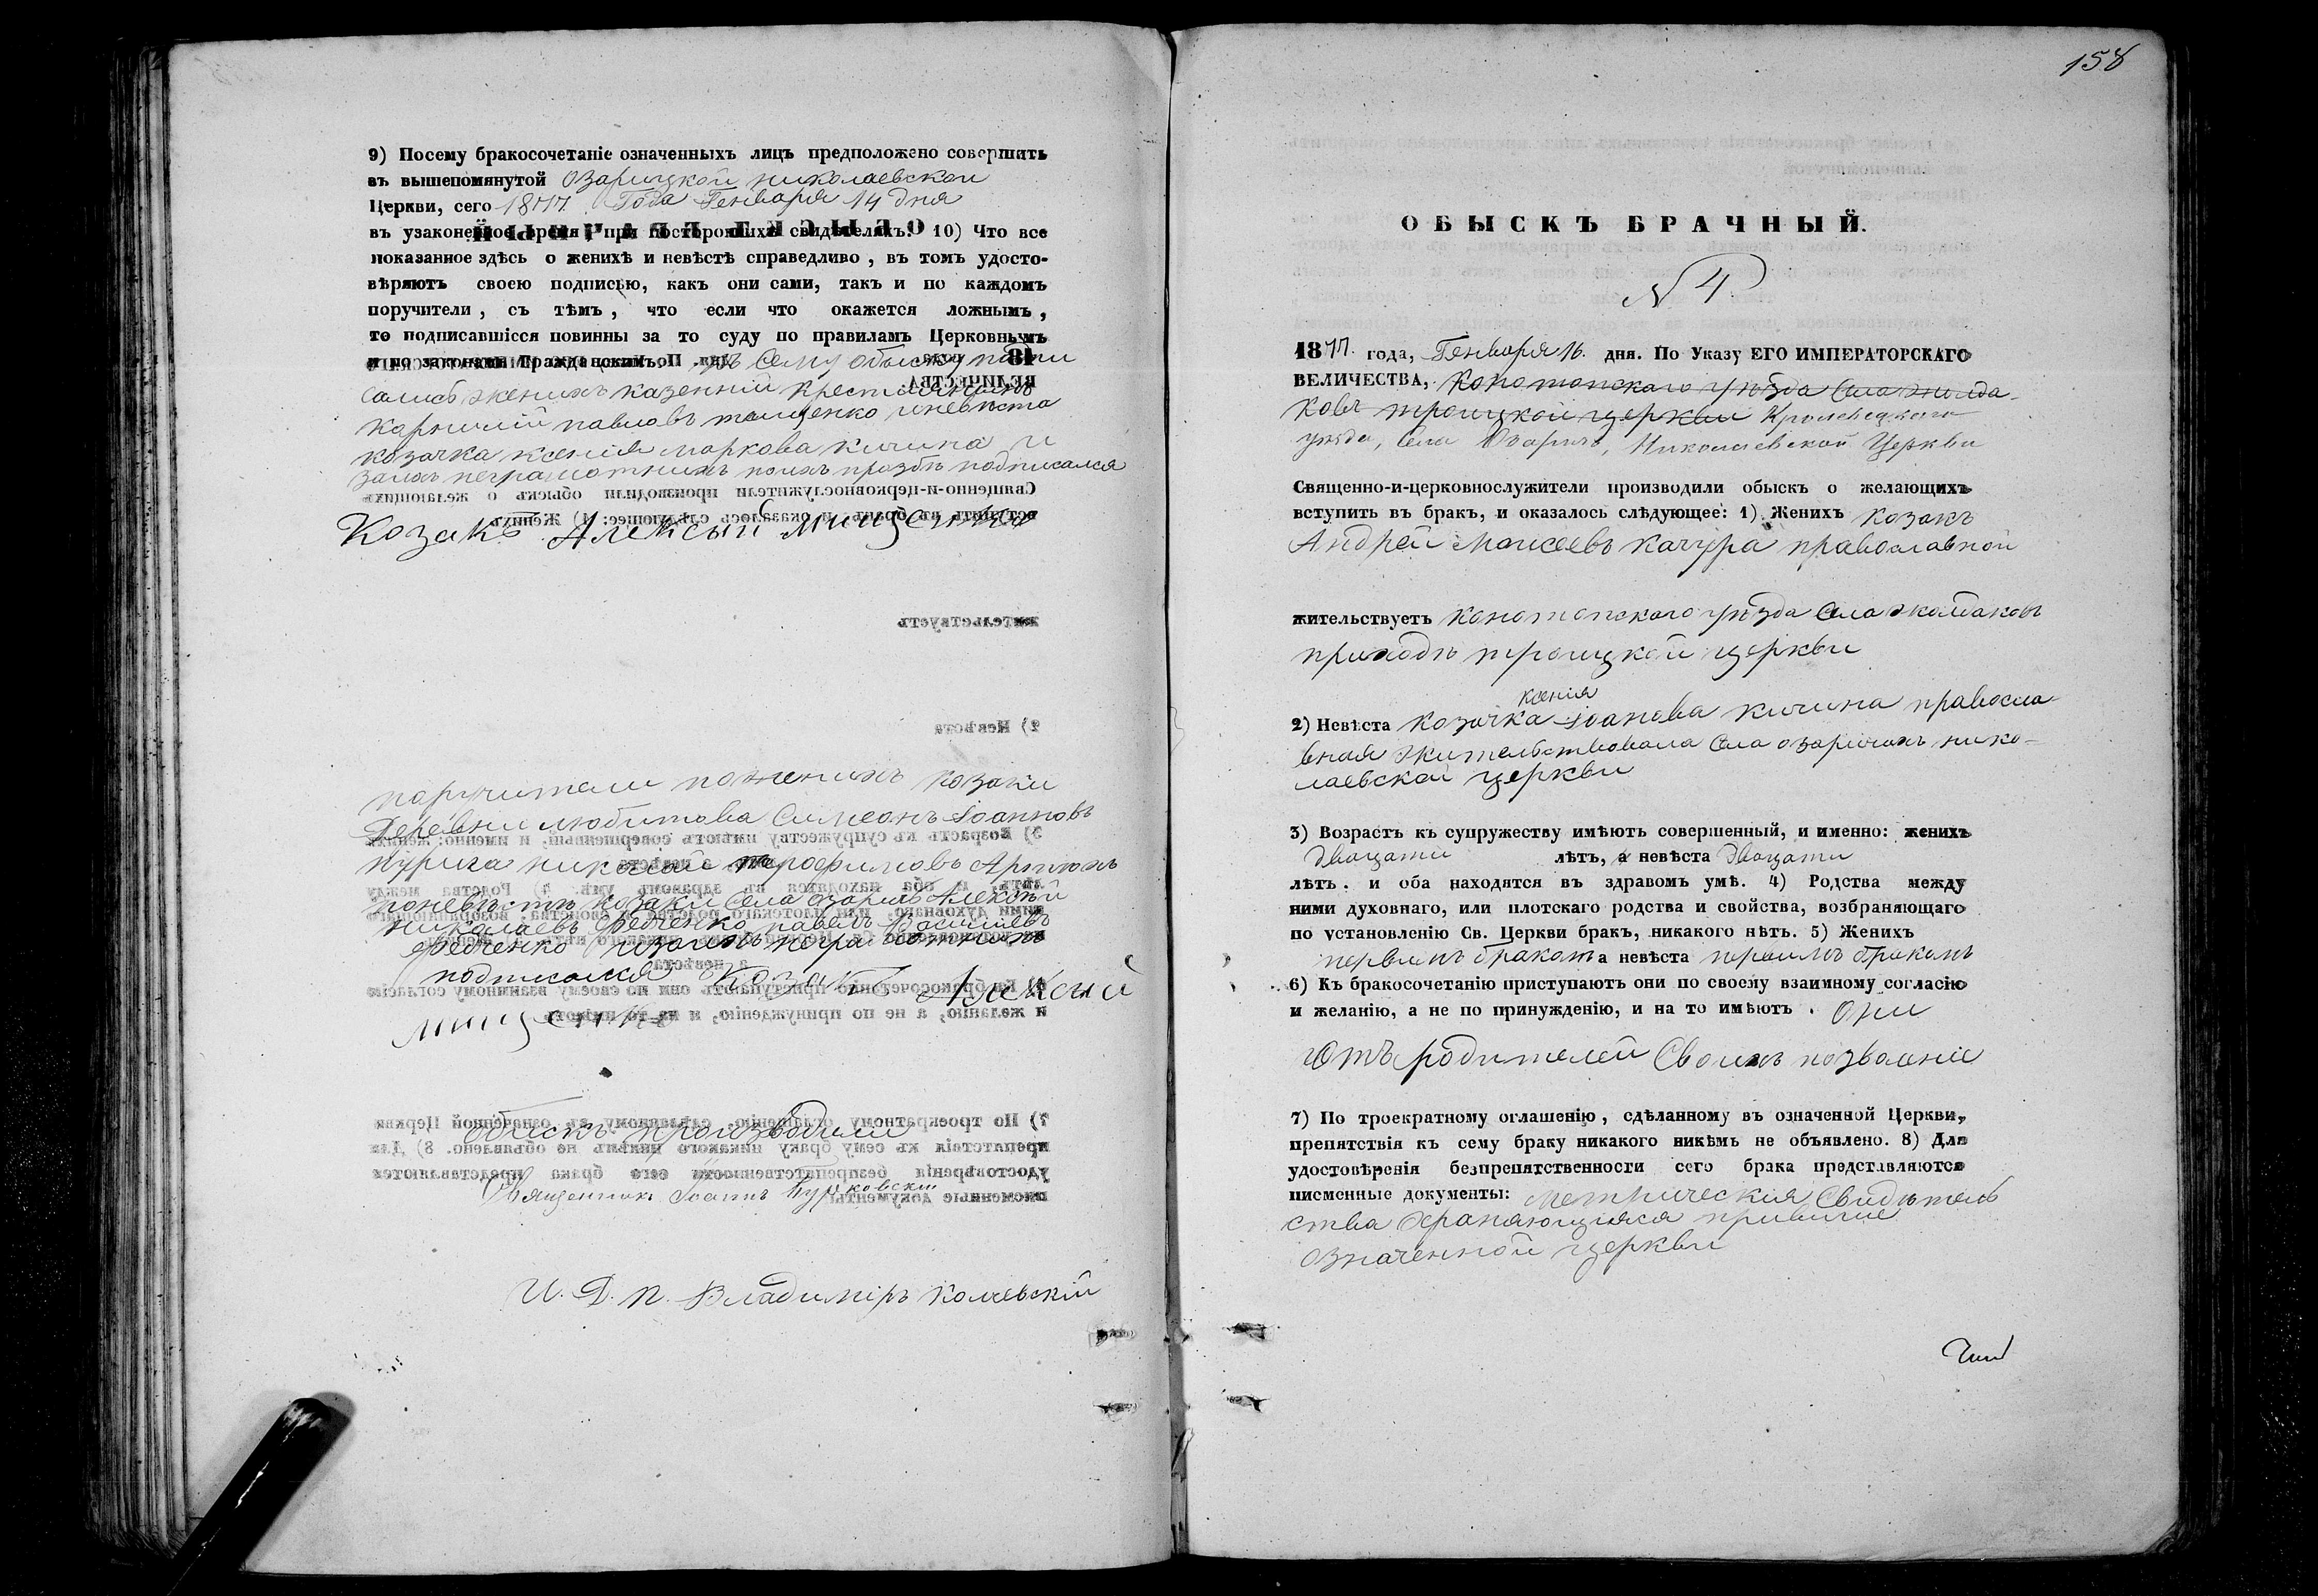 9) Посему бракосочетаніе означенныхъ лицъ предположено совершить
въ вышепомянутой Озарицкой николаевской
Церкви, сего 1877. Года Генваря 14 дня
въ узаконенное время, при постороннихъ свидѣтеляхъ. 10) Что все
показанное здѣсь о женихѣ и невѣстѣ справедливо, въ томъ удосто-
вѣряютъ своею подписью, какъ они сами, такъ и по каждомъ
поручители, съ тѣмъ, что если что окажется ложнымъ,
то подписавшіеся повинны за то суду по правиламъ Церковнымъ
и по законамъ Гражданскимъ. Къ Сему обыску подпи
сались женихъ казенній крестьянинъ
Корнилій павловъ тащенко иневѣста
козачка ксенія маркова кичина и
занихъ неграмотнихъ поихъ прозбѣ подписался
Козакъ Алексый Мищенко
поручители поженихѣ козаки
Деревни любитова Симеонъ Іоанновъ
николай трофимовъ
поневѣстѣ козаки Села Озаричъ Алексѣй
николаевъ Федченко павелъ Васильевъ
Федченко изанихъ неграмотнихъ
подписался Козакъ Алексый
Мищенко
Обыскъ производили
Священникъ Іоаннъ
И. Д. П. Владиміръ
158
ОБЫСКЪ БРАЧНЫЙ.
N 4
1877. года, Генваря 16. дня. По Указу ЕГО ИМПЕРАТОРСКАГО
ВЕЛИЧЕСТВА, Конотопскаго уѣзда Села жолда-
ковъ троицкой церкви Кролевецкаго
уѣзда, Села Озаричъ, Николаевской Церкви
Священно-и-церковнослужители производили обыскъ о желающихъ
вступить въ бракъ, и оказалось слѣдующее: 1) Женихъ козакъ
Андрей Моисеевъ качура православной
жительствуетъ конотопскаго уѣзда Села жолдаковъ
приходѣ троицкой церкви
ксенія
2) Невѣста козачка Іоанова кичина правосла
вная жительствовала Села озаричахъ нико-
лаевской церкви
3) Возрастъ къ супружеству имѣютъ совершенный, и именно: женихъ
двацати лѣтъ, а невѣста двацати
лѣтъ. и оба находятся въ здравомъ умѣ. 4) Родства между
ними духовнаго, или плотскаго родства и свойства, возбраняющаго
по установленію Св. Церкви бракъ, никакого нѣтъ. 5) Женихъ
первимъ бракомъ а невѣста первимъ бракомъ
6) Къ бракосочетанію приступаютъ они по своему взаимному согласію
и желанію, а не по принужденію, и на то имѣютъ. Они
Отъ родителей Своихъ позволеніе
7) По троекратному оглашенію, сдѣланному въ означенной Церкви,
препятствія къ сему браку никакого никѣмъ не объявлено. 8) Для
удостовѣренія безпрепятственности сего брака представляются
писменные документы: Метрическія Свидѣтель
ства Хранающіяся привише
означенной церкви